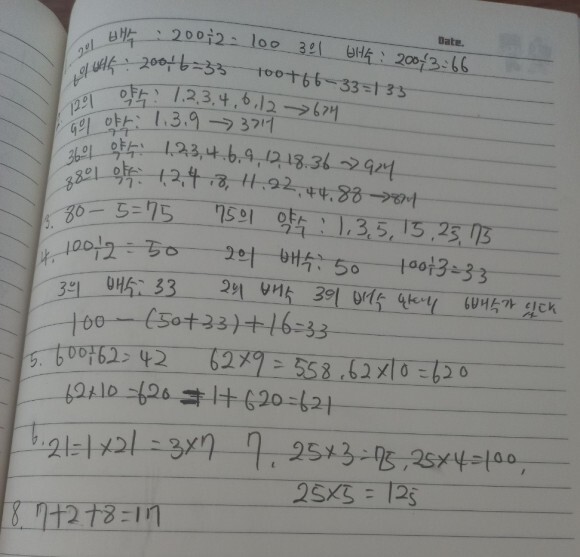 Date.
2의 배수 : 200÷2=100 3의 배수: 200÷3=66
6의 배수: 200÷6=33 100+66-33=133
12의 약수: 1,2,3,4,6,12→6개
9의 약수: 1,3,9→3개
36의 약수: 1,2,3,4,6,9,12,18,36→9개
88의 약수: 1,2,4,8,11,22,44,88→8개
3. 80-5=75 75의 약수: 1,3,5,15,25,75
4. 100÷2=50 2의 배수: 50 100÷3=33
3의 배수: 33 2의 배수 3의 배수 6배수가 있다
100-(50+33)+16=33
5. 600÷62=42 62×9=558, 62×10=620
62×10=620 1+620=621
6. 21=1×21=3×7 7. 25×3=75, 25×4=100,
25×5=125
8. 7+2+8=17